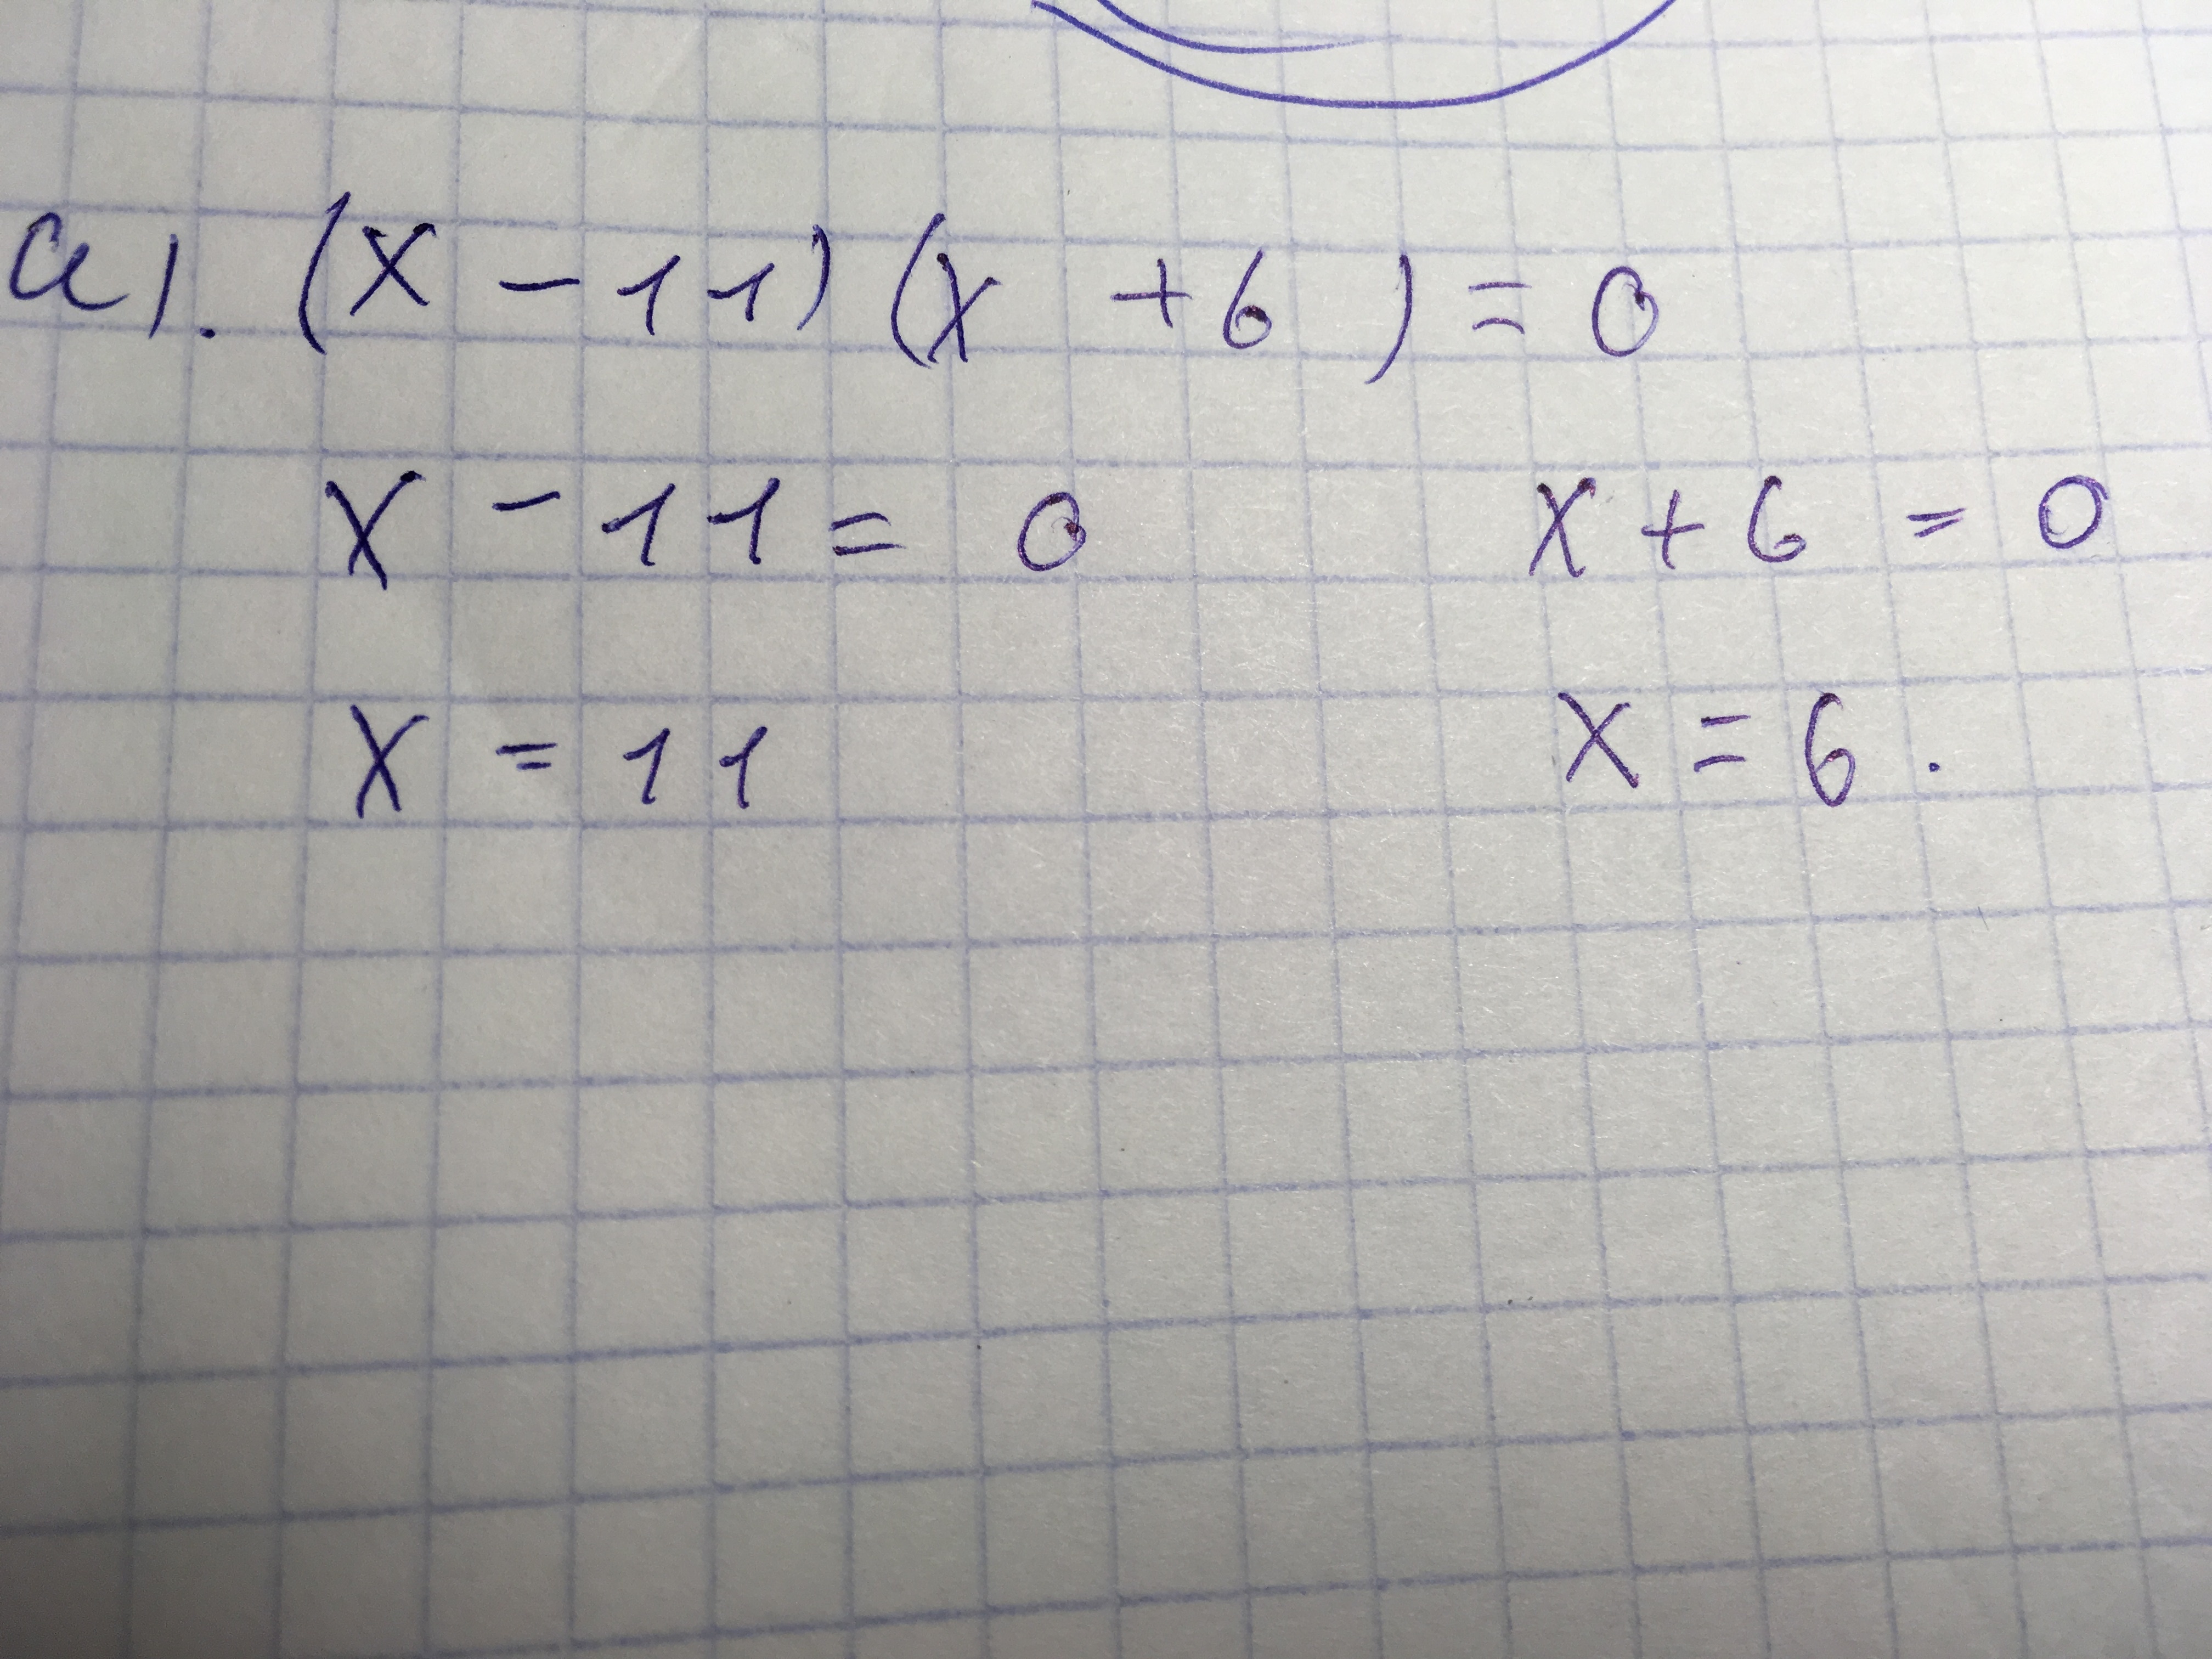 a). (x - 11) (x + 6) = 0
x - 11 = 0 x + 6 = 0
x = 11 x = 6.